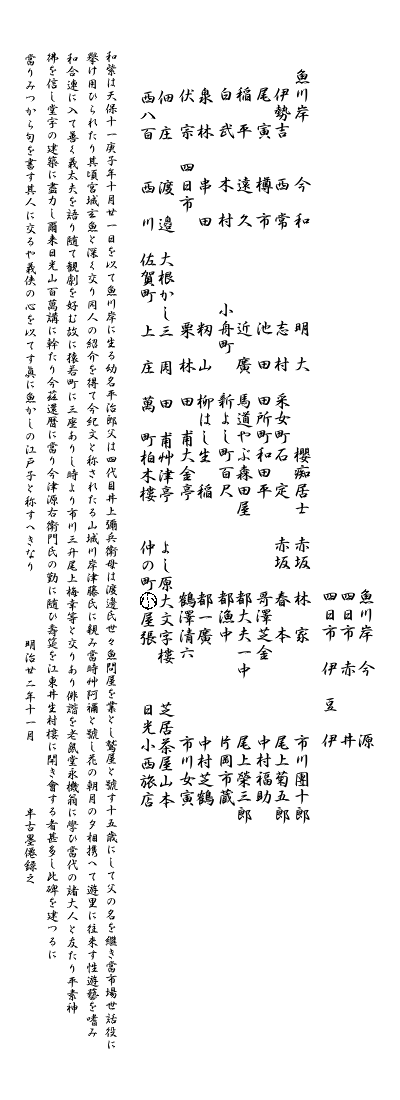 魚川岸 今 源
四日市 赤 井
四日市 伊 豆 伊
魚川岸 今 和 明 大 櫻痴居士 赤坂 林 家 市川團十郎
伊勢吉 西 常 志 村 采女町 石 定 赤坂 春 本 尾上菊五郎
尾 寅 樽 市 池 田 田所町 和田平 哥澤芝金 中村福助
稲 平 遠 久 近 廣 馬道 やぶ森田屋 都大夫一中 尾上榮三郎
白 武 木 村 小舟町 新よし町 百尺 都漁中 片岡市蔵
泉 林 串 田 籾 山 柳はし 生 稲 都一廣 中村芝鶴
伏 宗 四日市 栗 林 田 甫 大金亭 鶴澤清六 市川女寅
佃 庄 渡 邉 大根かし 三 周 田 甫 艸津亭 よし原 大文字樓 芝居茶屋 山本
西八百 西 川 佐賀町 上 庄 萬 町 柏木樓 仲の町 屋張 日光 小西旅店
和紫は天保十一庚子年十月廿一日を以て魚川岸に生る幼名平治郎父は四代目井上彌兵衛母は渡邉氏世々魚問屋を業とし鷲屋と號す十五歳にして父の名を継き當市場世話役に
擧け用ひられたり其頃宮城玄魚と深く交り同人の紹介を得て今紀文と称されたる山城川岸津藤氏に親み當時艸阿彌と號し花の朝月の夕相携へて遊里に往来す性遊藝を嗜み
和合連に入て善く義太夫を語り随て観劇を好む故に猿若町に三座ありし時より市川三升尾上梅幸等と交りあり俳諧を老鼠堂永機翁に學ひ當代の諸大人と友たり平素神
佛を信し堂宇の建築に盡力し爾来日光山百萬講に幹たり今茲還暦に當り今津源右衛門氏の勧に随ひ壽筵を江東井生村樓に開き會する者甚多し此碑を建つるに
當りみつから句を書す其人に交るや義侠の心を以てす真に魚かしの江戸子と称すへきなり 明治廿二年十一月 半古墨僊録之